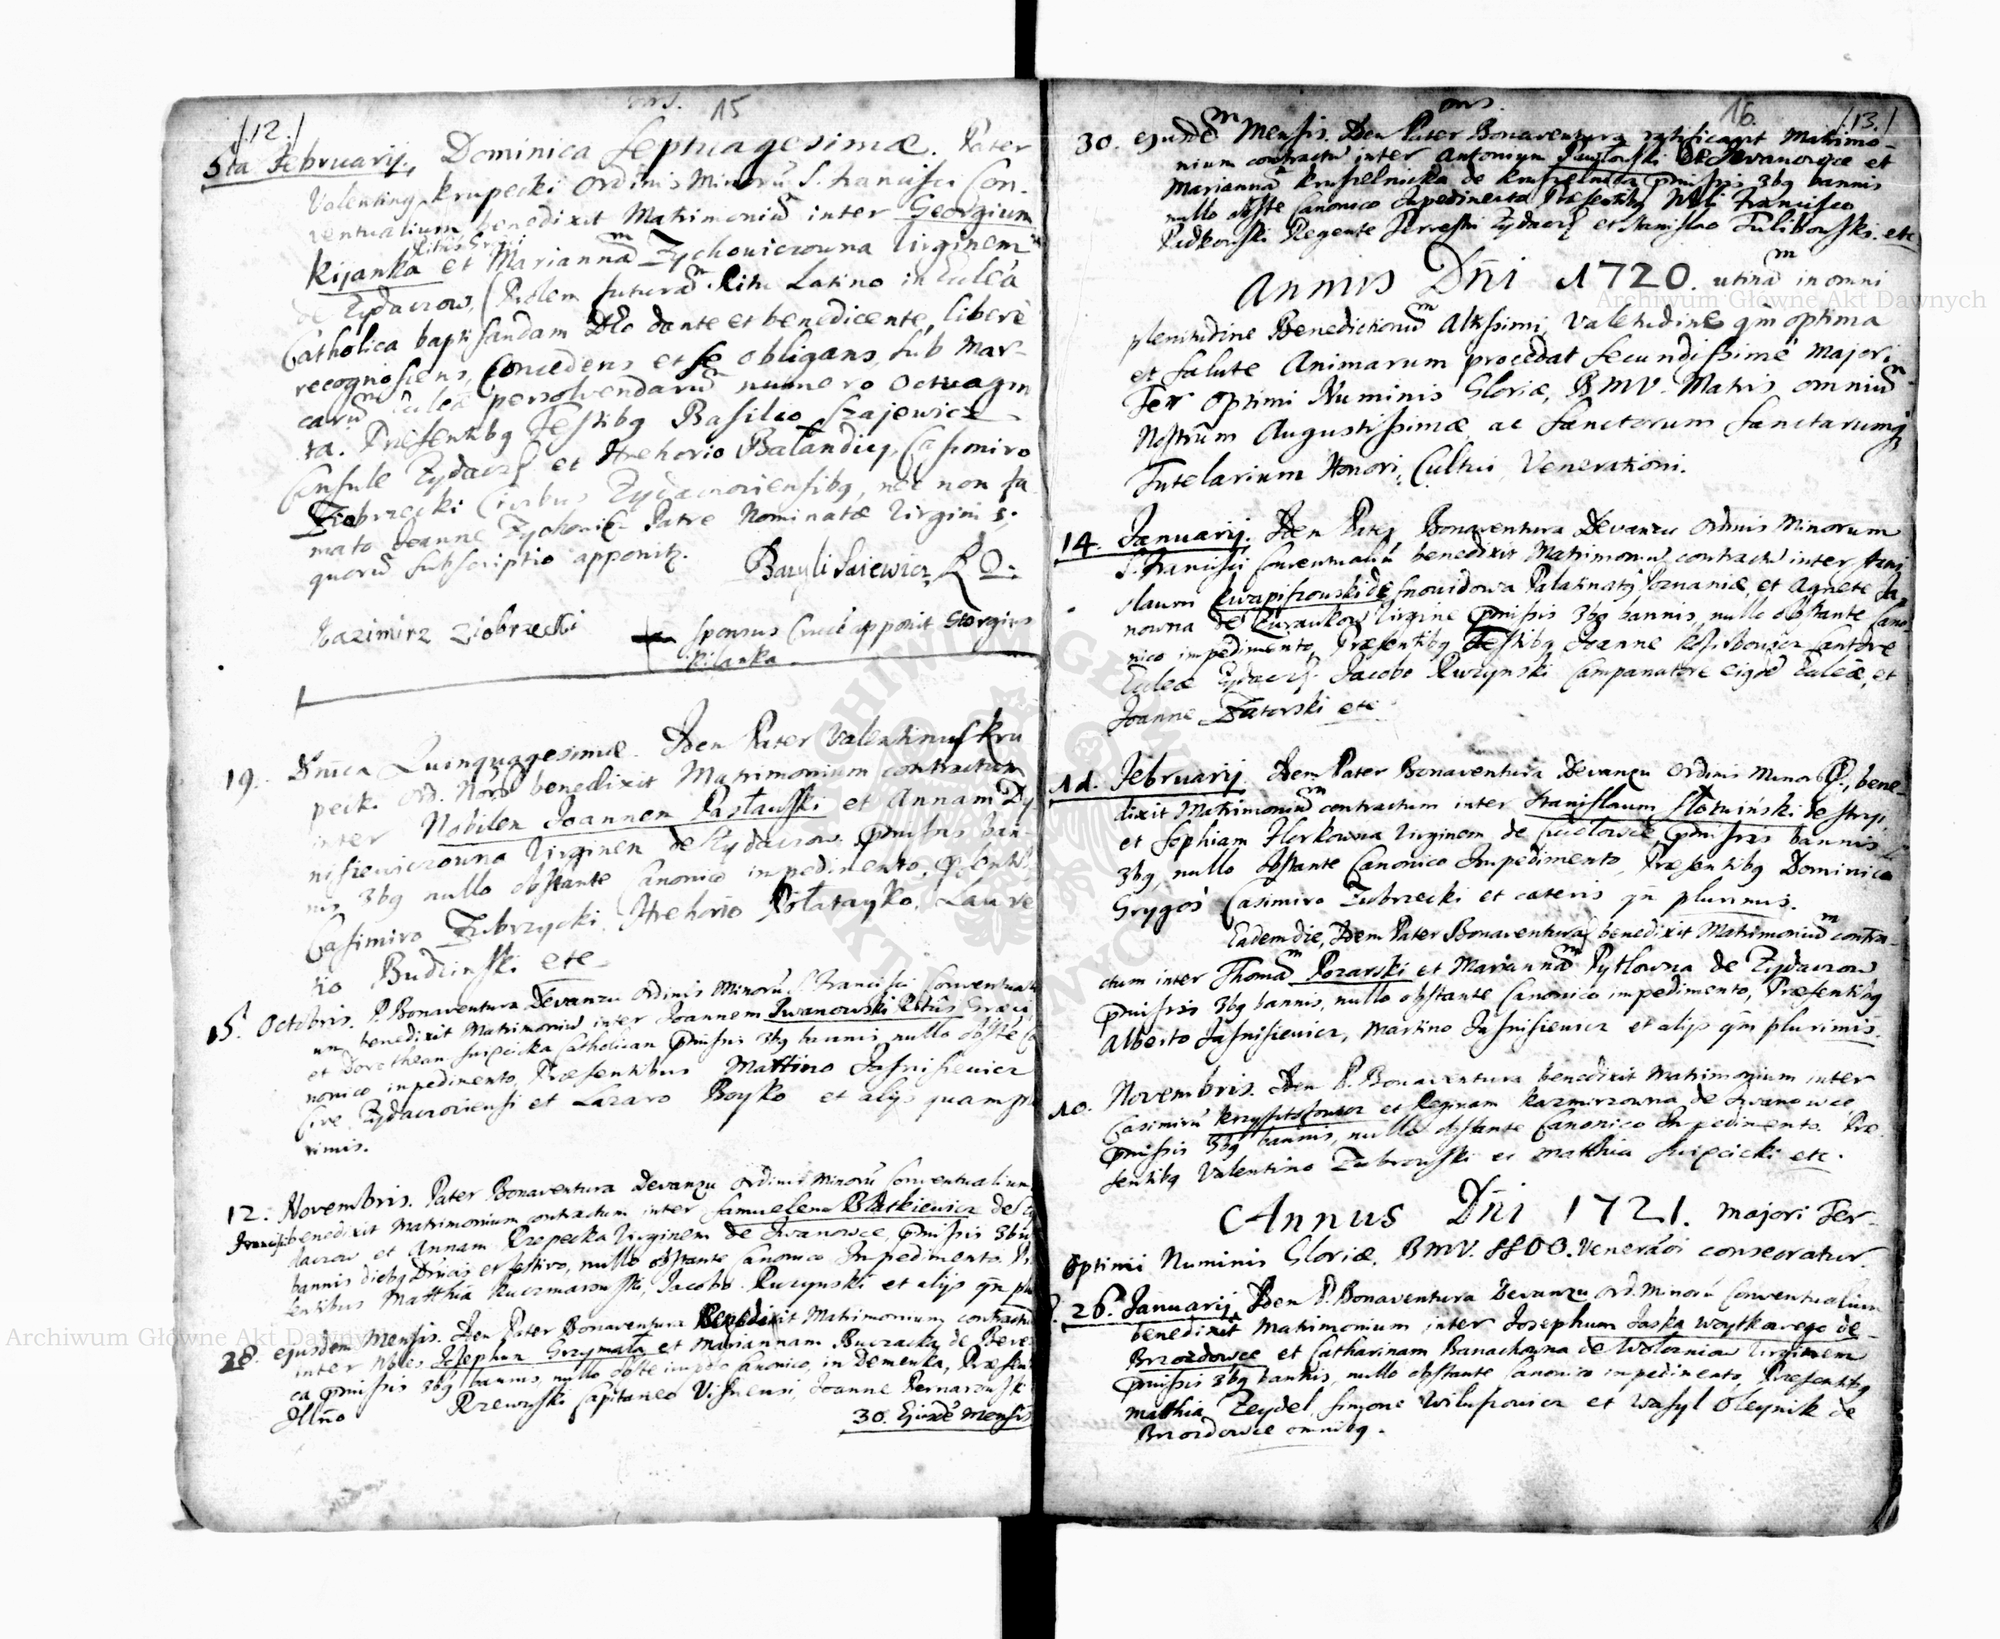 /12./
15
5ta Februarij. Dominica Septuagesimæ. Pater
Valentinq Krupecki Ordinis Minorũ S. Francisci Con-
ventualium, benedixit Matrimoniũ inter Georgium
Ritus Græci
Kijanka et Mariannam Zychowiczowna Virginem
de Zydaczow, (Prolem futuram Ritu Latino in Eccleã
Catholica baptisandam Deo dante et benedicente, liberè
recognoscens, Concedens et se obligans, sub Mar-
carum Eccleæ persolvendarum numero octuagin
ta. Præsentibq Testibq Basilio Szajewicz
Consule Zydacz et Hrehorio Bałandiuq, Casimiro
Ziobrzecki Civibus Zydaczoviensibq, nec non fa
mato Joanne Zychowicz Patre Nominatæ Virginis;
quorũ subscriptio apponitr.
Bazyli Saiewicz R D:
Kazimirz Ziobrzecki
Sponsus Cruce apponit Georgius
Kijanka
19. Dnica Quinquagesimæ. Idem Pater Valentinus Kru
pecki Ord. benedixit Matrimonium contractum
inter Nobilem Joannem Pasławski et Annam Dy
nisiewiczowna Virginem de Zydaczow, pmissis ban-
nis 3bq nullo obstante Canonico impedimento, psentibq
Casimiro Zubrzycki, Hrehorio Połatayko, Lauren
tio Budzinski etc
15. Octobris. P. Bonaventura Devanzu Ordinis Minorũ S. Francisci Conventuali
um benedixit Matrimoniũ inter Joannem Iwanowski Ritûs Græci,
et Dorotheam Swięcicka Catholicam pmissis 3bq bannis nullo obste Ca
nonico impedimento, Præsentibus Martino Jasnisiewicz
Cive Zydaczoviensi et Lazaro Boysko et alijs quamplu
rimis.
12. Novembris. Pater Bonaventura Devanzu Ordinis Minorũ Conventualium
Francisci benedixit Matrimonium contractum inter Samuelem Błatkiewicz de Zy
daczow et Annam Rzepecka Virginem de Iwanowce, pmissis 3bus
bannis diebq Dnicis et festivo, nullo obstante Canonico Impedimento. Præ
sentibus Matthia Kuczmarowski, Jacobo Ruczynski et alijs qm plu
28. ejusdem Mensis. Idem Pater Bonaventura Benedixit Matrimonium contractũ
inter Nbles Josephum Grzymała et Mariannam Buczacka de Bere
ca pmissis 3bq bannis, nullo obste impdto Canonico, in Demenka, Præsen
Illmo Rzewuski Capitaneo Visnensi, Joanne Bernarowski
30. Ejusdẽ Mensis
16.
/13./
30. ejusdem Mensis. Idem Pater Bonaventura ratificavit Matrimo-
nium contractũ inter Antonium Pawłowski de Iwanowce et
Mariannam Kruszelnicka de Kruszelnica pmissis 3bq bannis
nullo obste Canonico Impedimento Præsentibq Nbli Francisco
Rudkowski Regente Terrestri Zydacz et Stanislao Tulibowski. etc
Annus Dñi 1720. utinam in omni
plenitudine Benedictionum Altissimi, Valetudine qm optima
et salute Animarum procedat secundissimè majori
Ter Optimi Numinis Gloriæ, BMV. Matris omnium
Nostrum Augustissimæ, ac Sanctorum Sanctarumq
Tutelarium Honori, Cultui, Venerationi.
14. Januarij. Idem Pater Bonaventura Devanzu Ordinis Minorum
S. Francisci Conventualiũ benedixit Matrimoniũ contractũ inter Stani
slaum Kwapiszowski de Snowidowa Palatinatq Posnaniæ, et Agnete Ja
nowna de Zurawkow Virgine pmissis 3bq bannis, nullo obstante Cano-
nico impedimento, Præsentibq Testibq Joanne Cantore
Eccleæ Zydacz. Jacobo Ruczynski Campanatore eiqdẽ Eccleæ, et
Joanne Zatorski etc
11. Februarij. Idem Pater Bonaventura Devanzu Ordinis Minor, bene-
dixit Matrimonium contractum inter Stanislaum Słotwiński de Stryj
et Sophiam Horkowna Virginem de Cucułowce pmissis bannis
3bq, nullo obstante Canonico Impedimento, Præsentibq Dominico
Grygoś Casimiro Zubrzecki et cæteris qm plurimis.
Eadem die, Idem Pater Bonaventura benedixit Matrimonium contra-
ctum inter Thomam Pozarski et Mariannam Pytlowna de Zydaczow
pmissis 3bq bannis, nullo obstante Canonico impedimento, Præsentibq
Alberto Jasnisiewicz, Martino Jasnisiewicz et alijs qm plurimis.
10. Novembris. Idem P. Bonaventura benedixit Matrimonium inter
Casimirũ Krzysztofowicz et Reginam Kazmirzowna de Iwanowce
pmissis 3bq bannis, nullo obstante Canonico Impedimento. Præ
sentibq Valentino Zubrowski et Matthia Swięcicki etc.
Annus Dñi 1721. Majori Ter-
Optimi Numinis Gloriæ, BMV. SSOO. Venerãoi consecratur.
26. Januarij, Idem P. Bonaventura Devanzu Ord. Minorũ Conventualium
benedixit Matrimonium inter Josephum Jaska Woytkowego de
Brzozdowce et Catharinam Banachowna de Wołczniow Virginem
pmissis 3bq bannis, nullo obstante Canonico impedimento, Præsentibq
Matthia Zeydel, Simone Wilusowicz et Wasyl Oleynik de
Brzozdowce omnibq.
Archiwum Główne Akt Dawnych
Archiwum Główne Akt Dawnych
ARCHIWUM GŁÓWNE AKT DAWNYCH